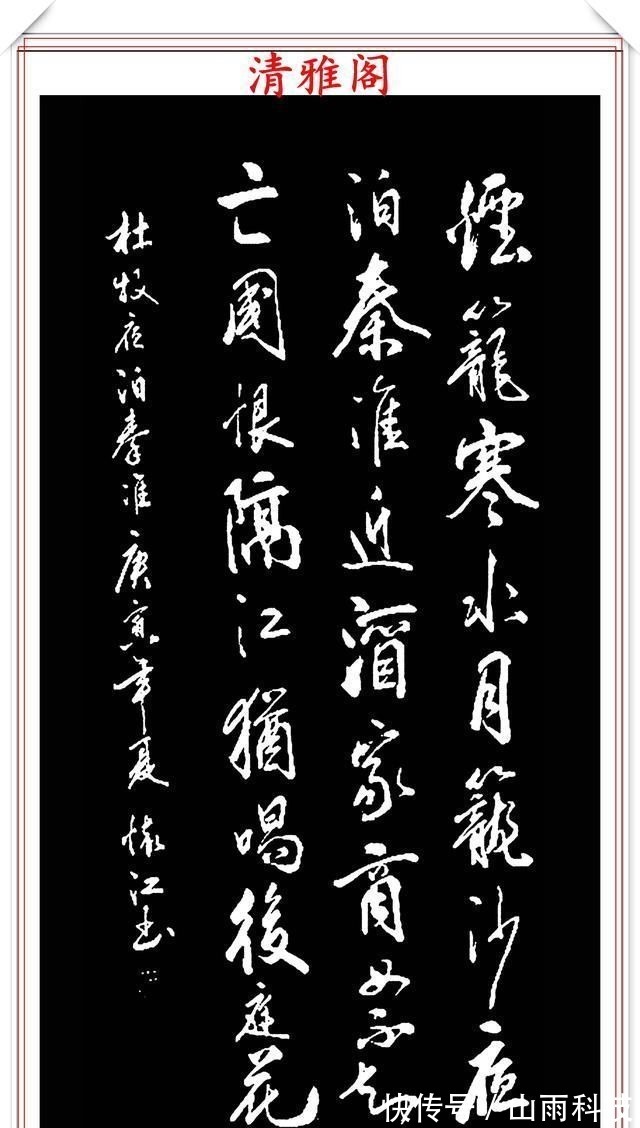 清雅阁
煙籠寒水月籠沙夜
泊秦淮近酒家商女不知
亡國恨隔江猶唱後庭花
杜牧夜泊秦淮 庚寅年夏 懷江書
快传号/山雨科技